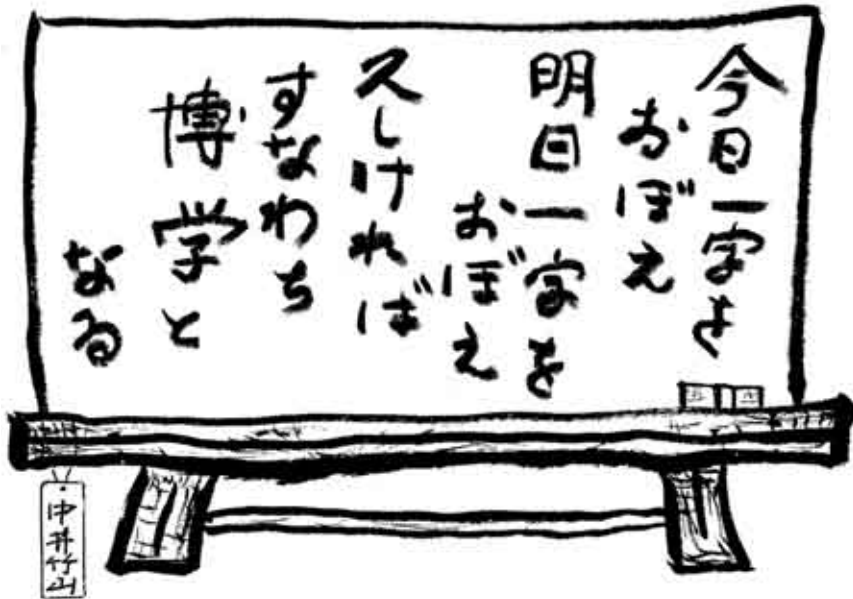 今日一字を
おぼえ
明日一字を
おぼえ
久しければ
すなわち
博学と
なる
中井竹山